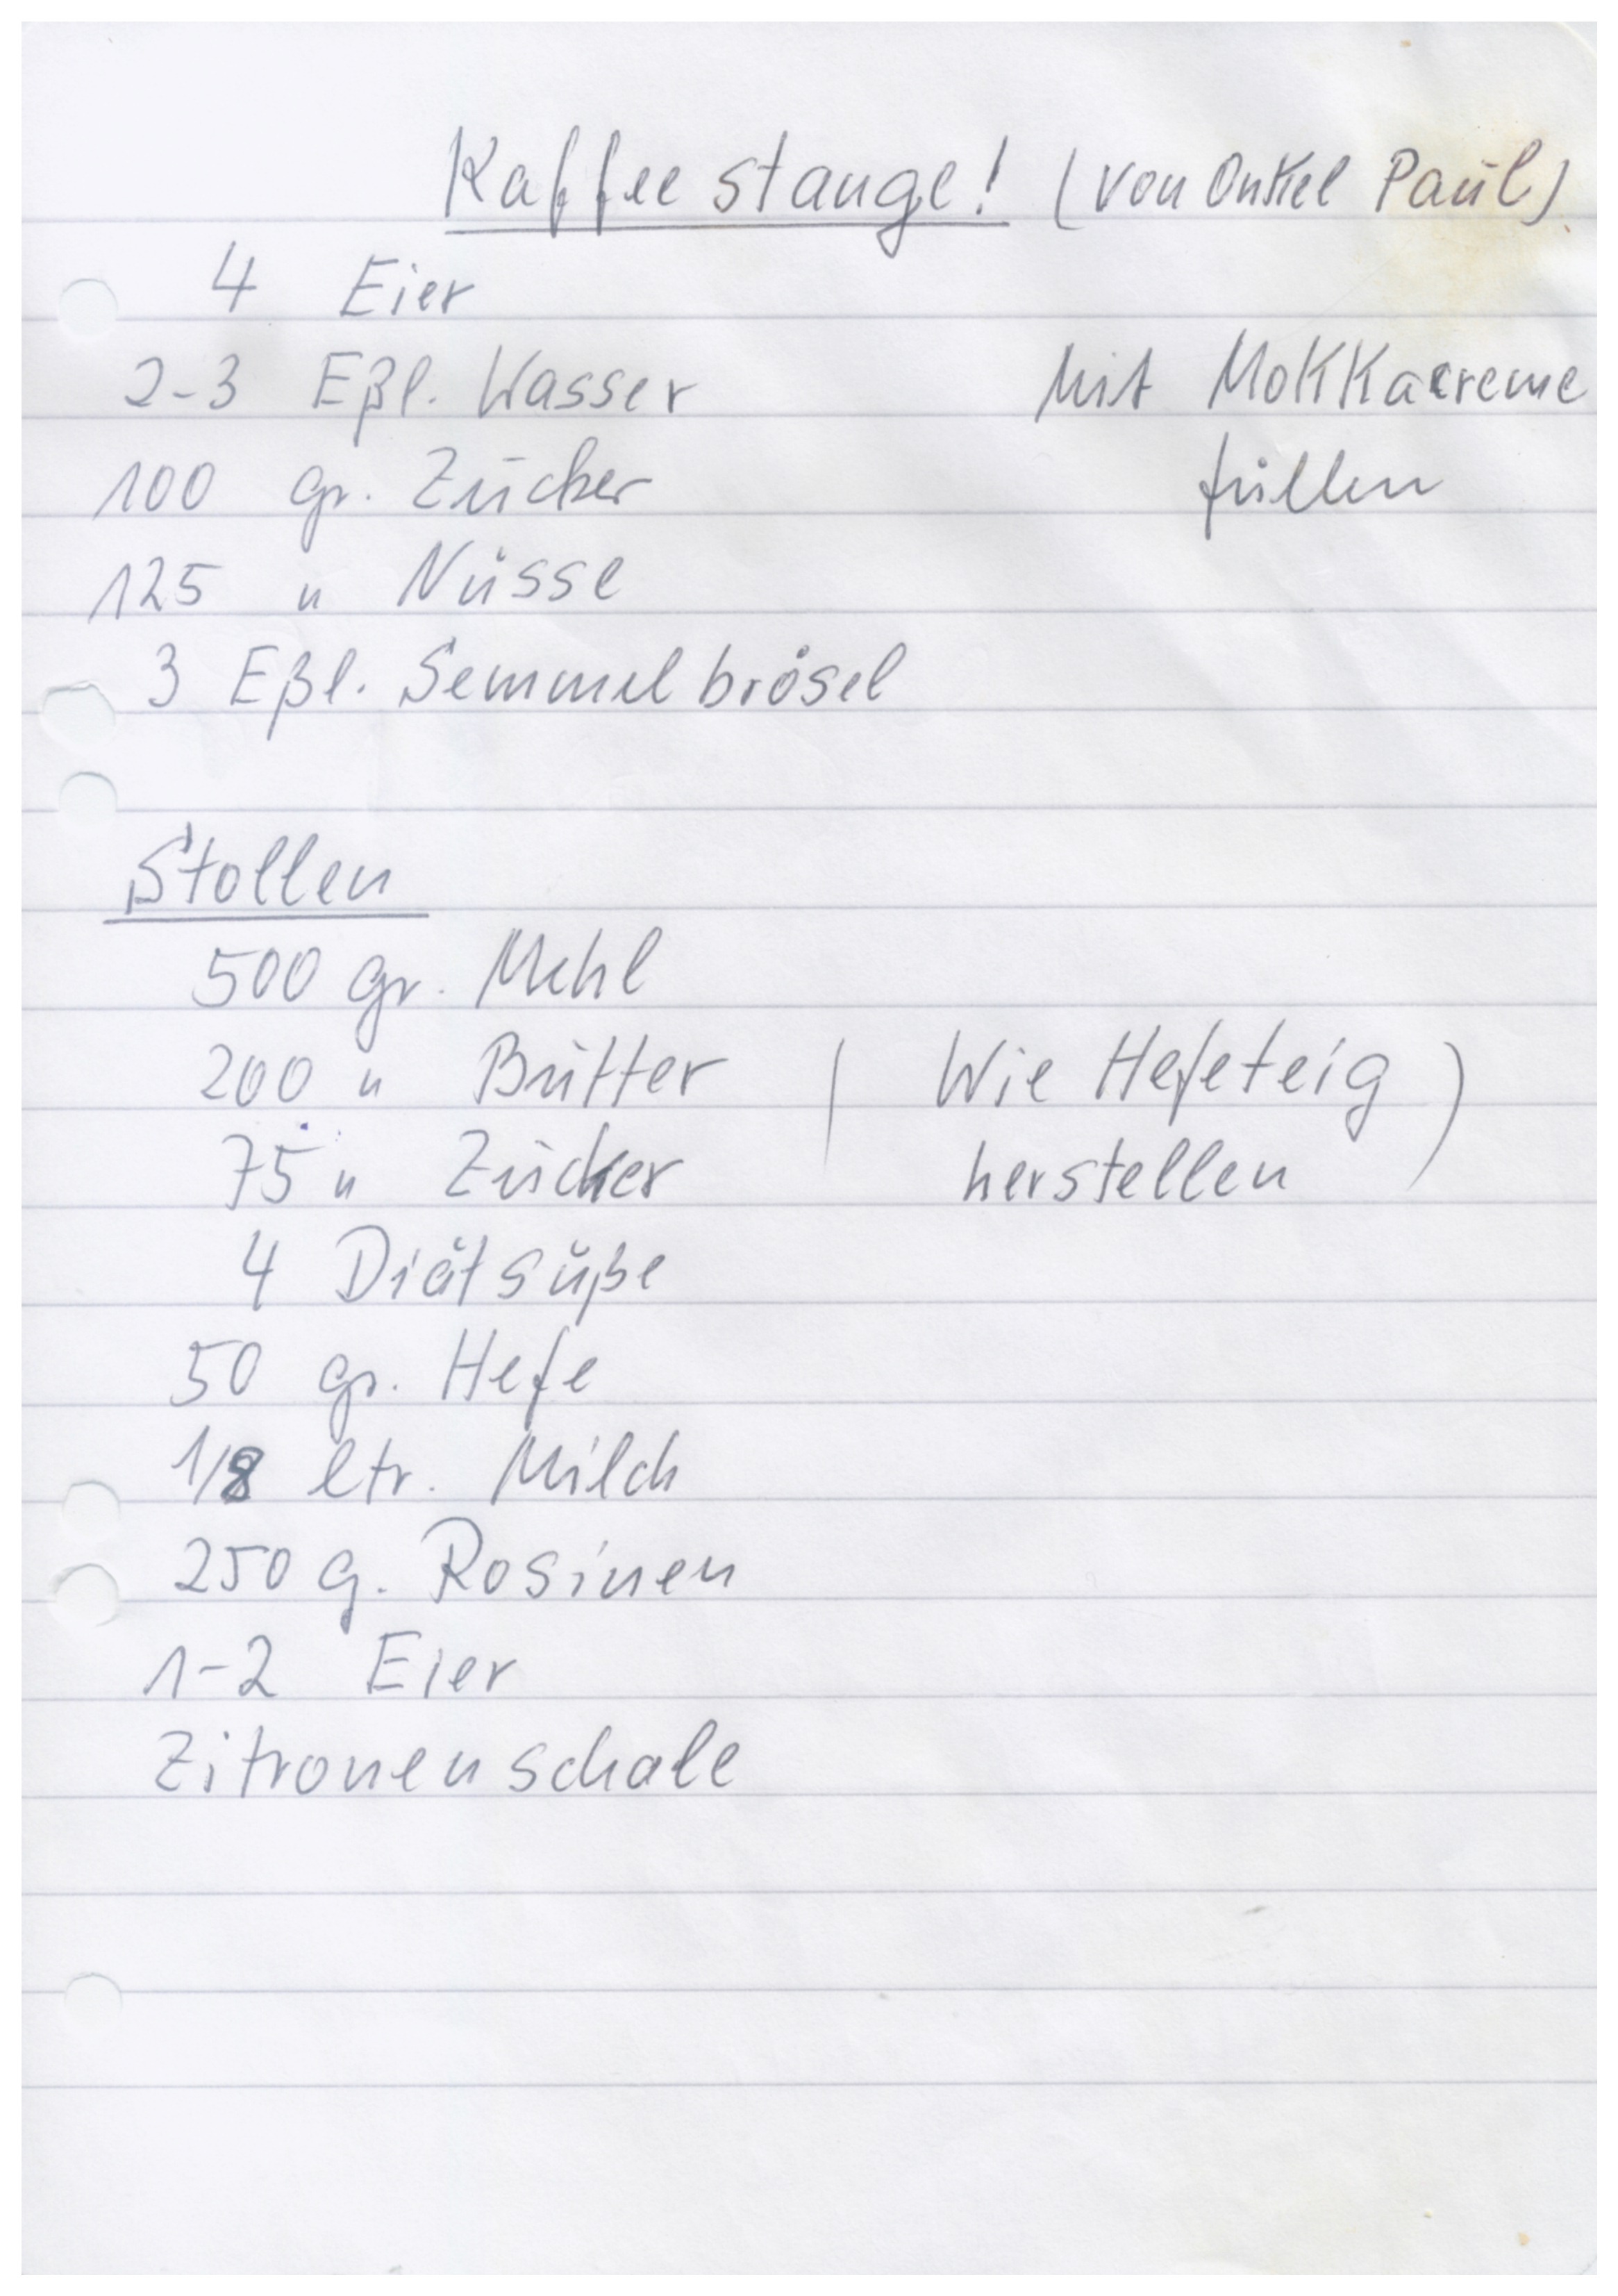 Kaffeestange! (von Onkel Paul)
4 Eier
2-3 Eßl. Wasser
Mit Mokkacreme
100 gr. Zucker
füllen
125 " Nüsse
3 Eßl. Semmelbrösel
Stollen
500 gr. Mehl
200 " Butter ( Wie Hefeteig )
75 " Zucker herstellen
4 Diätsüße
50 gr. Hefe
1/8 ltr. Milch
250 g. Rosinen
1-2 Eier
Zitronenschale